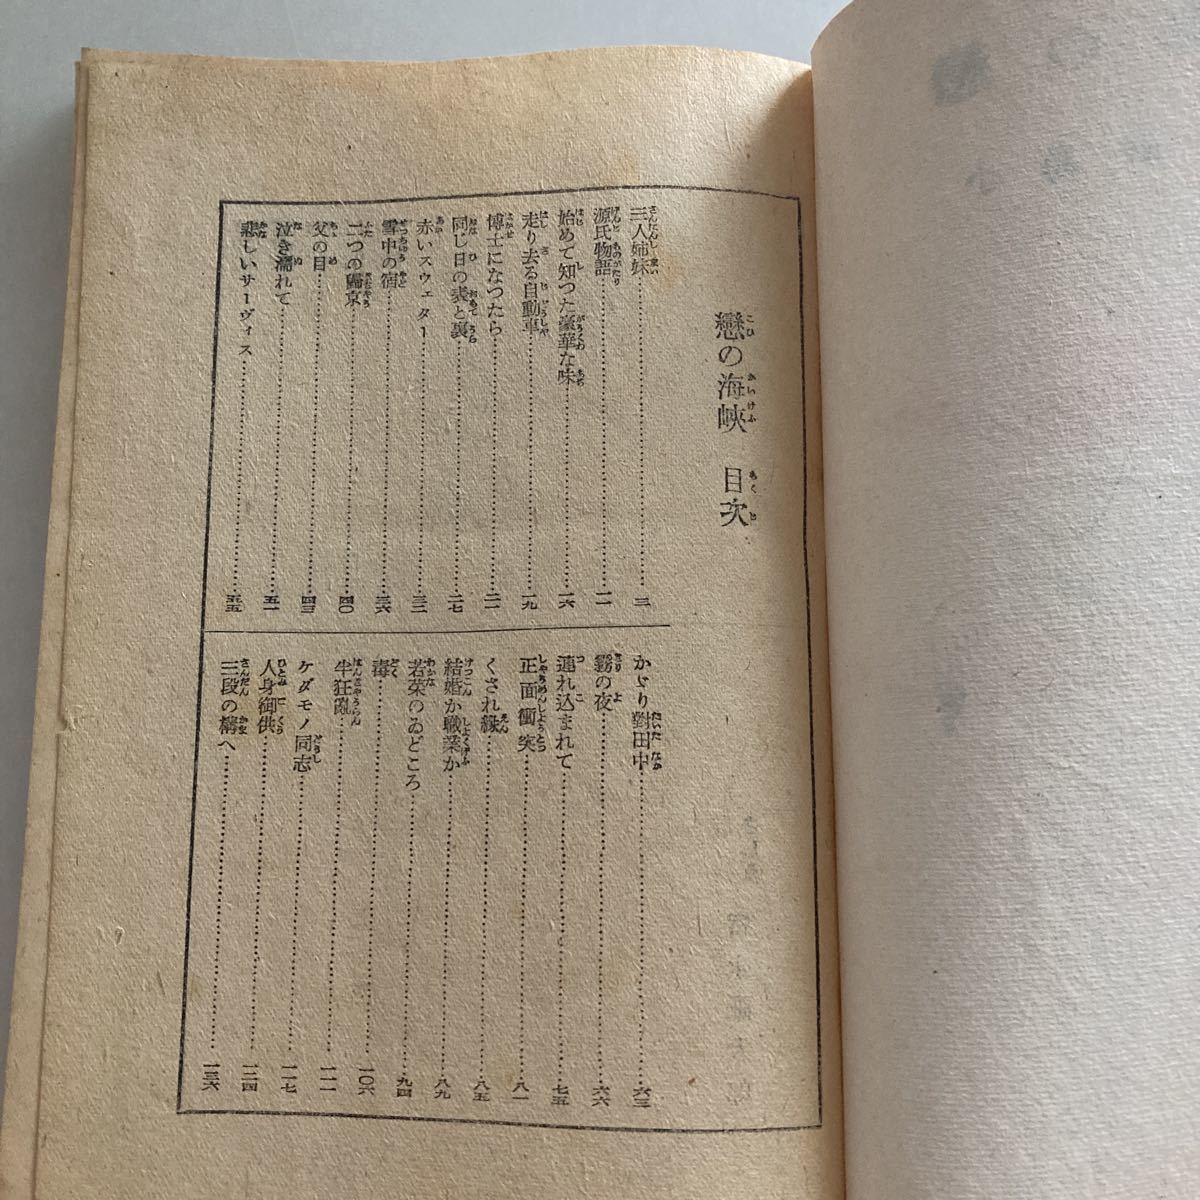 戀の海峽　目次
三人姉妹 三
源氏物語 一一
始めて知つた豪華な味 一六
走り去る自動車 一九
博士になつたら 二一
同じ日の表と裏 二七
赤いスウェター 三二
雪中の宿 三六
二つの歸京 四〇
父の目 四三
泣き濡れて 五一
悲しいサーヴィス 五五
かゞり對田中 六三
霧の夜 六六
連れ込まれて 七五
正面衝突 八一
くされ緣 八五
結婚か職業か 八九
若菜のゐどころ 九四
毒 一〇六
半狂亂 一一一
ケダモノ同志 一一七
人身御供 一二四
三段の構へ 一三六